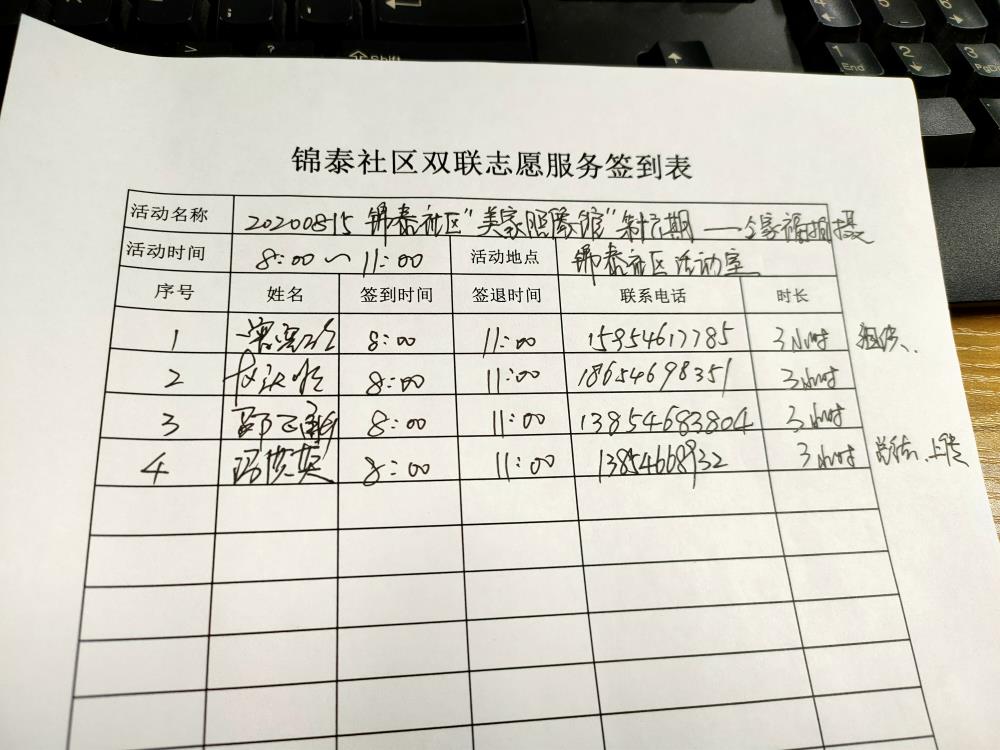 锦泰社区双联志愿服务签到表
活动名称 20200815 锦泰社区"美家照象馆"第六期——全家福拍摄
活动时间 8:00～11:00 活动地点 锦泰社区活动室
序号 姓名 签到时间 签退时间 联系电话 时长
1 8:00 11:00 15954617785 3小时 组织、
2 8:00 11:00 18654698351 3小时
3 8:00 11:00 13854683804 3小时
4 8:00 11:00 13854668932 3小时 总结、上传